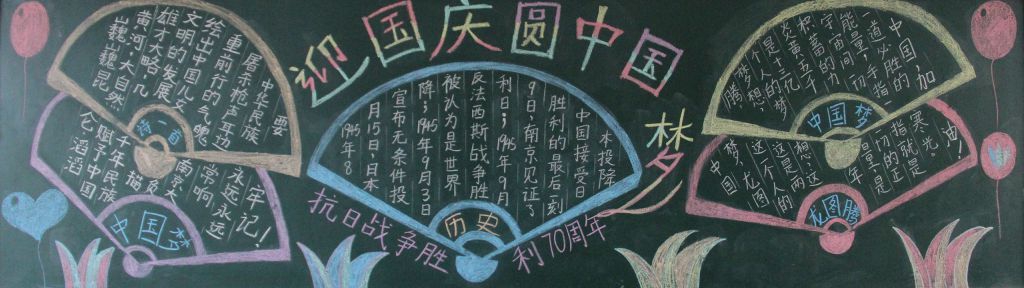 迎国庆圆中国梦
巍巍昆
黄河大自然
雄才大略几
文明的发展
绘出中国儿女
重前行的气魄
屠杀枪声耳边
中华民族
要
诗一首
仑滔滔
赐予中国
千年民族
福
南京大
常响
永远永远
牢记!
中国梦
1945年8
月15日,日本
宣布无条件投
降;1945年9月3日
被认为是世界
反法西斯战争胜
利日;1945年9月
9日,南京见证了
胜利的最后一刻
中国接受日
本投院
历史
抗日战争胜利70周年
腾
梦想
是个人的梦
十三亿
积蓄的五千
能量,
一道
中国必胜的
中国,加
中国梦
中国
梦,龙图
这一个人的
这是两
想,这
寒光。
油!
龙图腾